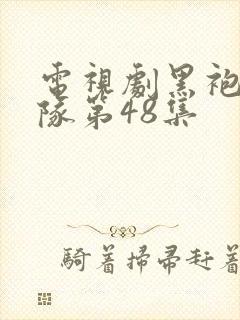 電視劇黑袍
隊第48集
騎著掃帚赶著